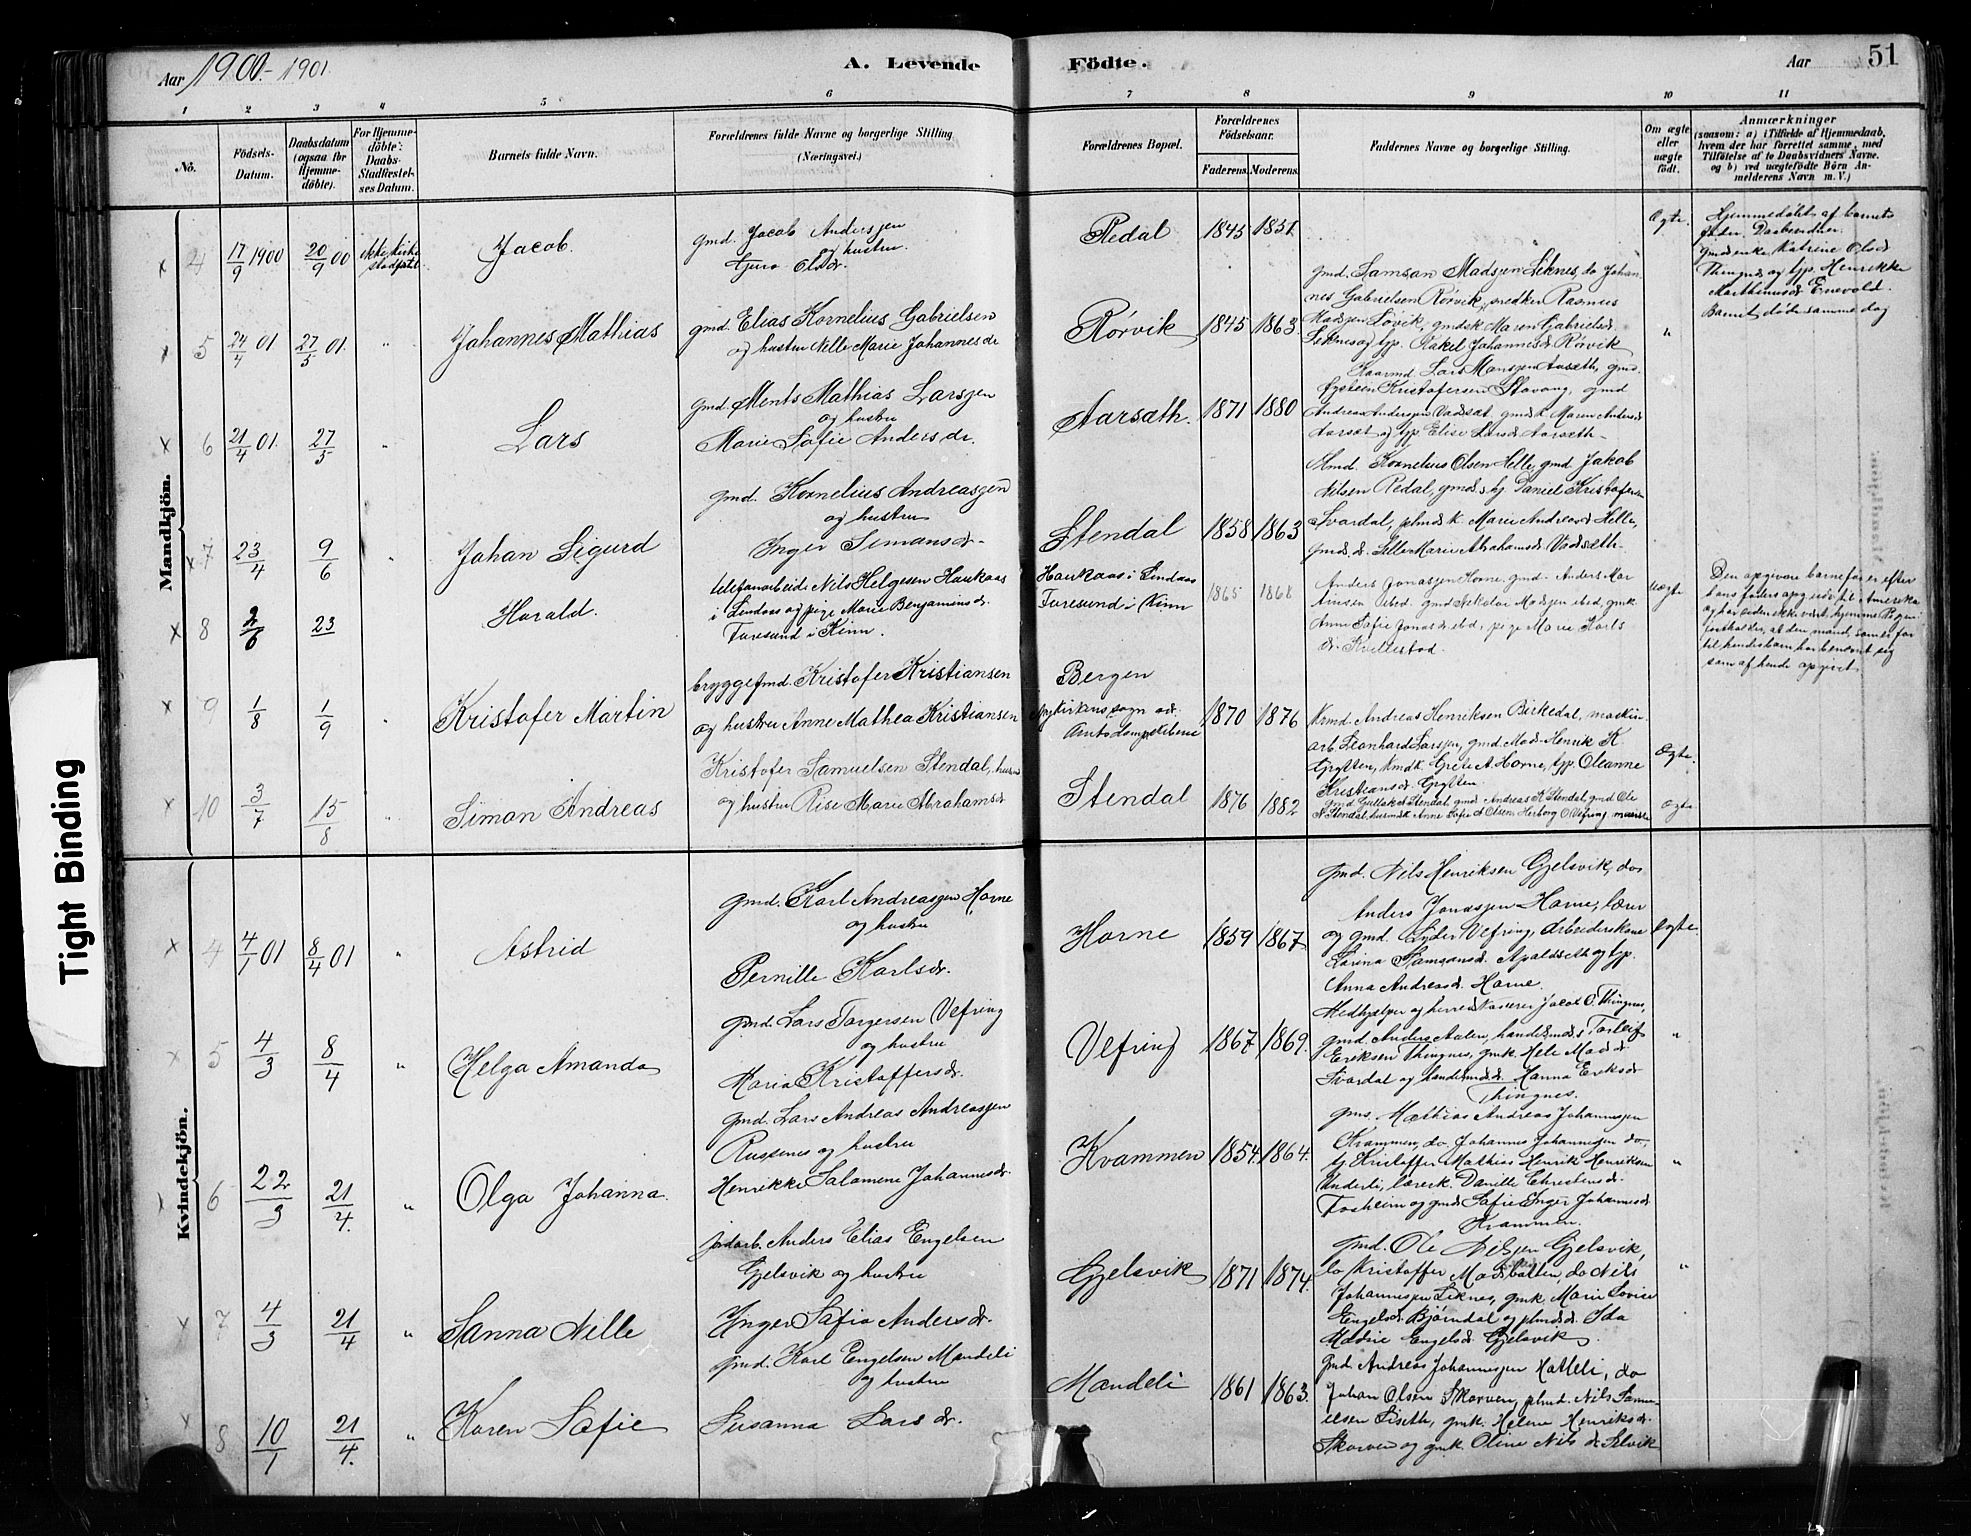 Aar 1900-1901.
A. Levende
Födte.
Aar
51
1 2 3 4 5 6 7 8 9 10 11
No.
Födsels-
Datum.
Daabsdatum
(ogsaa for
Hjemme-
döbte).
For Hjemme-
döbte:
Daabs-
Stadfæstel-
ses Datum.
Barnets fulde Navn.
Forældrenes fulde Navne og borgerlige Stilling
(Næringsvei.)
Forældrenes Bopæl.
Forældrenes
Födselsaar.
Faderens. Moderens.
Faddernes Navne og borgerlige Stilling.
Om ægte
eller
uægte
født.
Anmærkninger
(saasom: a) i Tilfælde af Hjemmedaab,
hvem der har forrettet samme, med
Tilföielse af to Daabsvidners Navne,
og b) ved uægtefödte Börn An-
melderens Navn m. V.)
Mandkjön.
4 17/9 1900 20/9 00 ikke kirke
stadfæstet
Jacob.
gmd. Jacob Anderssen
og hustru
Guro Olsdr.
Redal 1845 1851. Ægte.
Hjemmedøbt af barnets
fader. Daabsvidner:
gmdenke Katrine Olsd.
Thingnes og tjp. Henrikke
Marthinusd. Enevold.
Barnet døde samme dag
5 24/4 01 27/5 01. "
Johannes Mathias
gmd. Elias Kornelius Gabrielsen
og hustru Nille Marie Johannesdr
Rørvik 1845 1863. "
gmd. Samson Madssen Leknes, do Johan-
nes Gabrielsen Rørvik, snedker Rasmus
Madssen Løvik, gmdsk Maren Gabrielsd.
Leknes og tjp. Rakel Johannesd. Rørvik
6 21/4 01. 27/5 "
Lars
gmd. Ments Mathias Larssen
og hustru
Marie Sofie Andersdr.
Aarsæth. 1871 1880
Kaarmd. Lars Monssen Aarseth, gmd.
Eystein Kristofersen Stavang, gmd
Andreas Anderssen Vadsæt, gmdsk. Maren Andersd
Aarsæt og tjp. Elise Larsd. Aarsæth.
7 23/4 9/6 "
Johan Sigurd
gmd. Kornelius Andreassen
og hustru
Inger Simonsdr.
Stendal 1858 1863
gmd. Kornelius Olsen Helle, gmd Jakob
Nilsen Redal, gmds. s. tj. Daniel Kristofersen
Svardal, plmdsk. Marie Andreasd. Helle,
gmds. d. Lille Marie Abrahamsd. Vadsæth.
8 2/6 23
Harald.
telefonarbeider Nils Helgesen Haukaas
i Lindaas og pige Marie Benjaminsdr.
Faresund i Kinn.
Haukaas i Lindaas
Faresund i Kinn 1865 1868 uægte
Anders Jonassen Horne, gmd. Anders Mar-
tinsen ibd. gmd Nikolai Madssen ibd, gmk.
Anne Sofie Jonasdr. ibd, pige Marie Karls-
dr. Kvellestad.
Den opgivne barnefar er efter
hans faders opg. udv. til Amerika
9 1/8 1/9 "
Kristofer Martin
bryggefmd. Kristofer Kristiansen
og hustru Anne Mathea Kristiansen
Bergen
1870 1876 Ægte.
Krmd. Andreas Henriksen Birkedal, maskin-
arb. Leonhard Larssen, gmd. Mads Henrik K
Grytten, Kmdk. Grete A. Horne, tjp. Oleanne
Kristiansd. Grytten
10 3/7 15/8 "
Simon Andreas
Kristofer Samuelsen Stendal, husmd
og hustru Rise Marie Abrahamsdr
Stendal 1876 1882 ægte
gmd Gullak A Stendal, gmd Andreas K Stendal, gmd Ole
N Stendal, husmdk Anne Sofie A Olsen, Herborg O Vefring,
Kvindekjön.
4 4/1 01 8/4 01 "
Astrid
gmd. Karl Andreassen Horne
og hustru
Pernille Karlsdr.
Horne 1859 1867 Ægte.
gmd. Nils Henriksen Gjelsvik, do
Anders Jonassen Horne, lærer
og gmd. Lyder Vefring, Arbeiderskone
Lorina Samsonsd. Apaldsæth og tjp.
Anna Andreasd. Horne.
5 4/3 8/4 "
Helga Amanda
gmd. Lars Torgersen Vefring
og hustru
Maria Kristoffersdr.
Vefring 1867 1869. "
Medhjælper og herredskasserer Jacob O. Thingnes,
gmd Anders Aalen, handelsmds. s. Torleif
Eriksen Thingnes, gmk. Hele Madsdr.
Svardal og handelsmds. d. Hanna Eriksdr
Thingnes.
6 22/3 21/4. "
Olga Johanna.
gmd. Lars Andreas Andreassen
Russenes og hustru
Henrikke Salomine Johannesdr.
Kvammen 1854. 1864. "
gms. Mathias Andreas Johannessen
Kvammen, do Johannes Johannessen do,
tj. Kristoffer Mathias Henrik Henriksen
Underli, lærersk. Danille Christensdr.
Fosheim og gmds Sofie Inger Johannesdr
Kvammen.
7 4/3 21/4 "
Sanna Nille
jordarb. Anders Elias Engelsen
Gjelsvik og hustru
Inger Sofia Andersdr.
Gjelsvik 1871 1874. "
gmd. Ole Nilssen Gjelsvik,
do Kristoffer Madsbotten, do Nils
Johannessen Leknes, gmk. Marie Lovise
Engelsdr. Bjørndal og plmds d. Ida
Madine Engelsdr. Gjelsvik.
8 10/1 21/4. "
Karen Sofie
gmd. Karl Engelsen Mandeli
og hustru
Susanna Larsdr.
Mandeli 1861 1863.
gmd Andreas Johannessen Hatleli, do
Johan Olsen Skorven, plmd. Nils Samu-
elsen Liseth, gmk. Helene Henriksdr.
Skorven og gmk. Oline Nilsdr. Selvik
Tight Binding